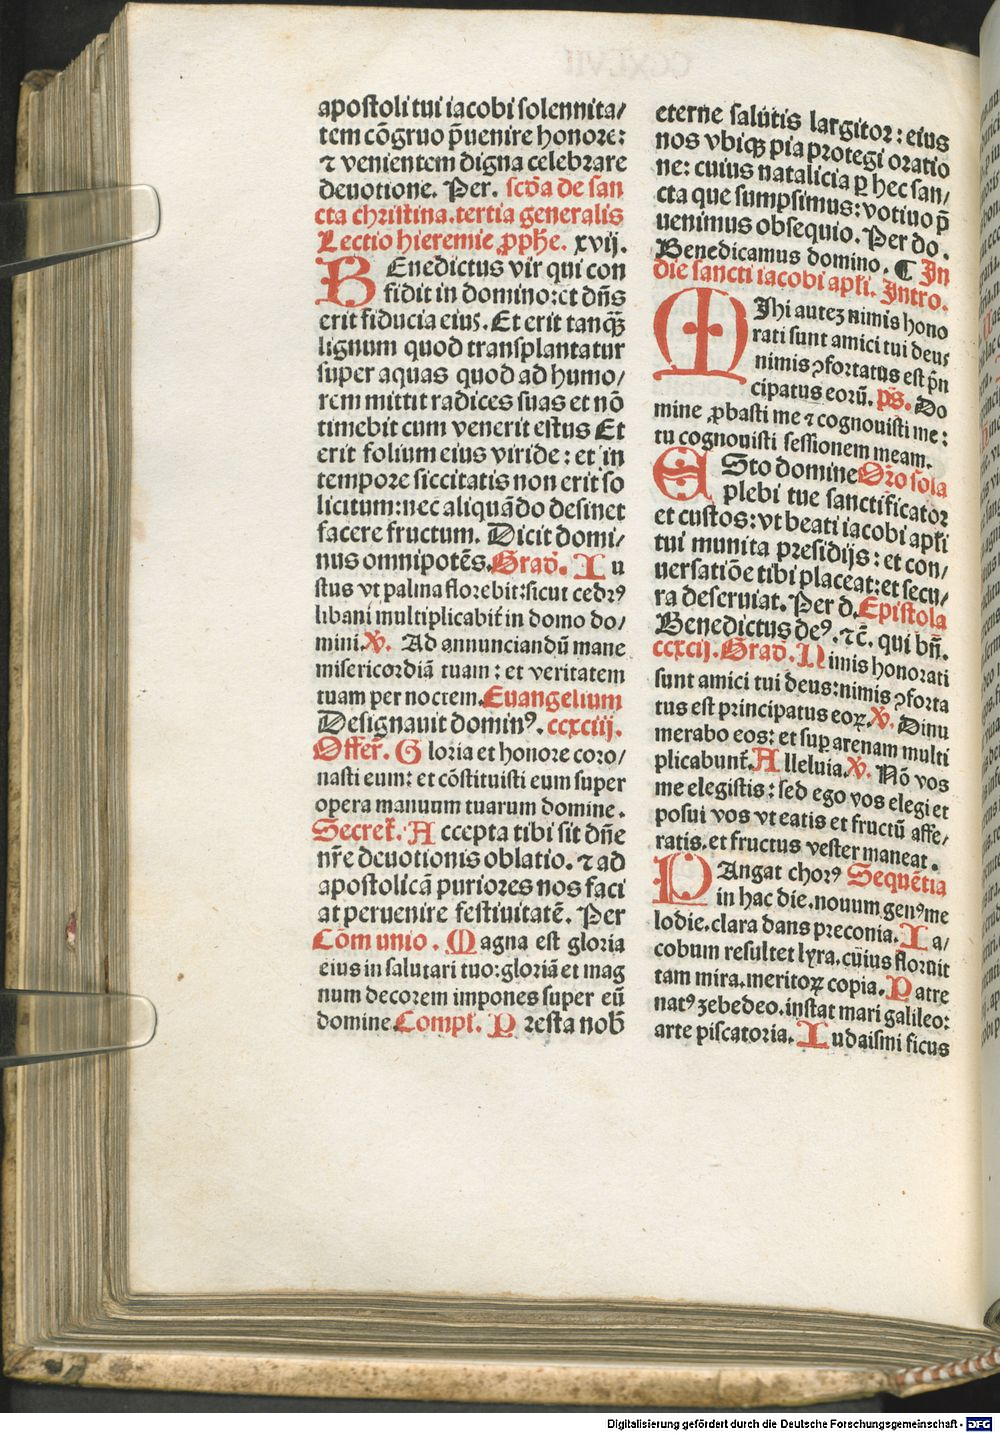 apostoli tui iacobi solennita/
tem cōgruo p̄uenire honore:
⁊ venientem digna celebrare
deuotione. Per. scd̄a de san
cta christina. tertia generalis
Lectio hieremie ꝓph̄e. xvij.
BEnedictus vir qui con
fidit in domino: et dn̄s
erit fiducia eius. Et erit tanqȝ̄
lignum quod transplantatur
super aquas quod ad humo/
rem mittit radices suas et nō
timebit cum venerit estus Et
erit folium eius viride: et in
tempore siccitatis non erit so
licitum: nec aliquādo desinet
facere fructum. Dicit domi/
nus omnipotēs. Grad̄. Iu
stus vt palma florebit: sicut cedrꝰ
libani multiplicabit̄ in domo do/
mini. ℣. Ad annunciandū mane
misericordiā tuam: et veritatem
tuam per noctem. Euangelium
Designauit dominꝰ. ccxciij.
Offer̄. Gloria et honore coro/
nasti eum: et cōstituisti eum super
opera manuum tuarum domine.
Secret̄. Accepta tibi sit dn̄e
nr̄e deuotionis oblatio. ⁊ ad
apostolicā puriores nos faci
at peruenire festiuitatē. Per
Cōmunio. Magna est gloria
eius in salutari tuo: gloriā et mag
num decorem impones super eū
domine. Compl̄. Presta nob̄
eterne salutis largitor: eius
nos vbiqȝ pia protegi oratio
ne: cuius natalicia ꝑ hec san/
cta que sumpsimus: votiuo p̄
uenimus obsequio. Per do.
Benedicamus domino. ¶ In
die sancti iacobi apl̄i. Intro.
MIhi auteȝ nimis hono
rati sunt amici tui deus
nimis ꝯfortatus est p̄n
cipatus eorū. ps̄. Do
mine ꝓbasti me ⁊ cognouisti me:
tu cognouisti sessionem meam.
ESto domine Or̄o sola
plebi tue sanctificator
et custos: vt beati iacobi apl̄i
tui munita presidijs: et con/
uersatiōe tibi placeat: et secu/
ra deseruiat. Per d. Epistola
Benedictus deꝰ. ⁊c̄. qui bn̄.
ccxcij. Grad̄. Nimis honorati
sunt amici tui deus: nimis ꝯforta
tus est principatus eoꝝ. ℣. Dinu
merabo eos: et suꝑ arenam multi
plicabunt̄. Alleluia. ℣. Nō vos
me elegistis: sed ego vos elegi et
posui vos vt eatis et fructū affe/
ratis. et fructus vester maneat.
PAngat chorꝰ Sequētia
in hac die. nouum genꝰ me
lodie. clara dans preconia. Ia/
cobum resultet lyra. cūius floruit
tam mira. meritoꝝ copia. Patre
natꝰ zebedeo. instat mari galileo:
arte piscatoria. Iudaismi ficus
Digitalisierung gefördert durch die Deutsche Forschungsgemeinschaft - DFG